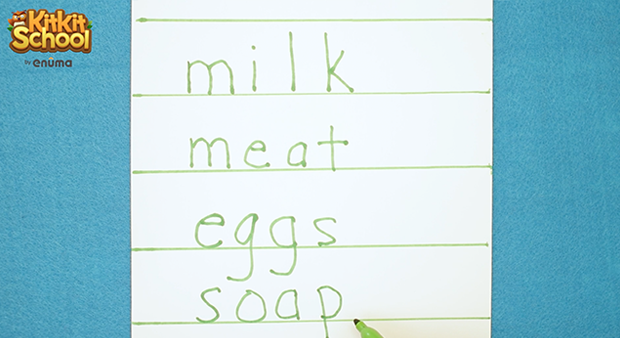 Kitkit
School
by enuma
milk
meat
eggs
soap